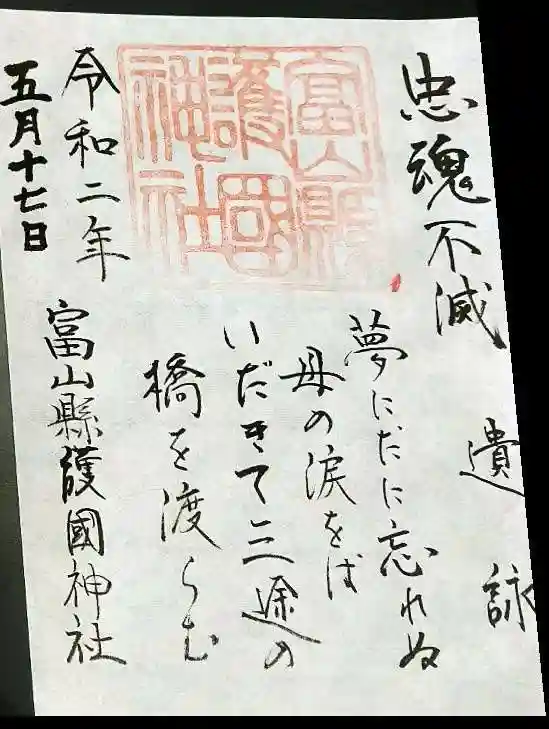 忠魂不滅
遺詠
夢にだに忘れぬ
母の涙をば
いだきて三途の
橋を渡らむ
富山縣護國神社
令和二年
五月十七日
富山縣
護國
神社